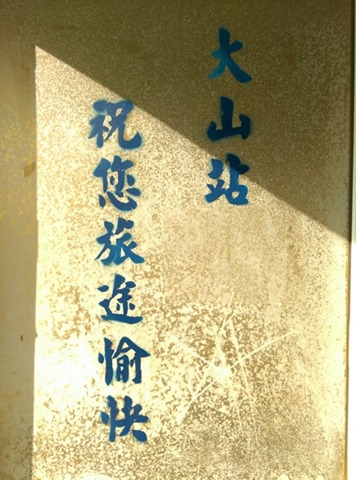 大山站
祝您旅途愉快